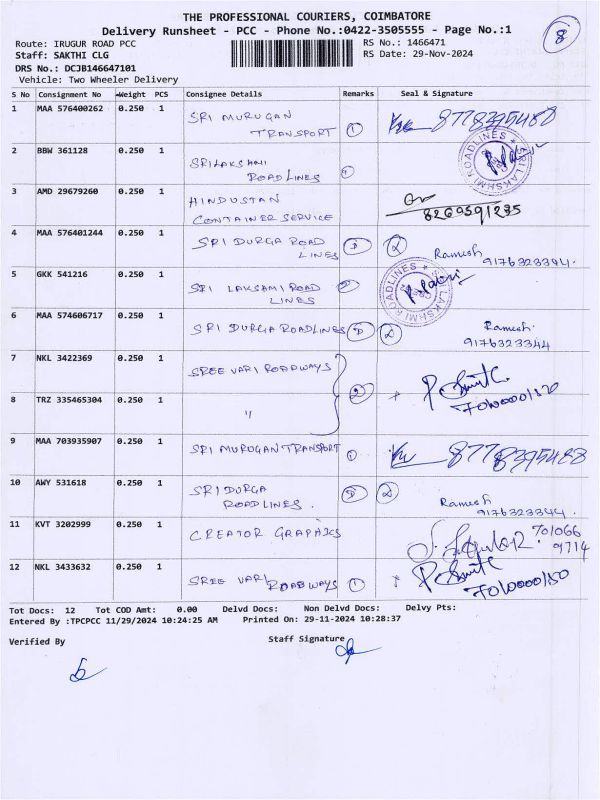 THE PROFESSIONAL COURIERS, COIMBATORE
Delivery Runsheet - PCC - Phone No.:0422-3505555 - Page No.:1
8
Route: IRUGUR ROAD PCC
RS No.: 1466471
Staff: SAKTHI CLG
RS Date: 29-Nov-2024
DRS No.: DCJB146647101
Vehicle: Two Wheeler Delivery
S No Consignment No Weight PCS Consignee Details Remarks Seal & Signature
1 MAA 576400262 0.250 1 SRI MURUGAN
TRANSPORT 1 8778395488
2 BBW 361128 0.250 1 SRILAKSHMI
ROADLINES
SRI LAKSHMI ROADLINES
3 AMD 29679260 0.250 1 HINDUSTAN
CONTAINER SERVICE
4 MAA 576401244 0.250 1 SRI DURGA ROAD
LINES Ramesh
9176323344.
5 GKK 541216 0.250 1 SRI LAKSAMI ROAD
LINES
SRI LAKSHMI ROADLINES
6 MAA 574606717 0.250 1 SRI DURGA ROADLINES Ramesh.
9176323344
7 NKL 3422369 0.250 1 SREE VARI ROADWAYS
2
8 TRZ 335465304 0.250 1 "
9 MAA 703935907 0.250 1 SRI MURUGAN TRANSPORT 1 8778395488
10 AWY 531618 0.250 1 SRI DURGA
ROADLINES. Ramesh
9176323344.
11 KVT 3202999 0.250 1 CREATOR GRAPHICS 701066
9714
12 NKL 3433632 0.250 1 SREE VARI ROADWAYS 1
Tot Docs: 12 Tot COD Amt: 0.00 Delvd Docs: Non Delvd Docs: Delvy Pts:
Entered By :TPCPCC 11/29/2024 10:24:25 AM Printed On: 29-11-2024 10:28:37
Verified By Staff Signature